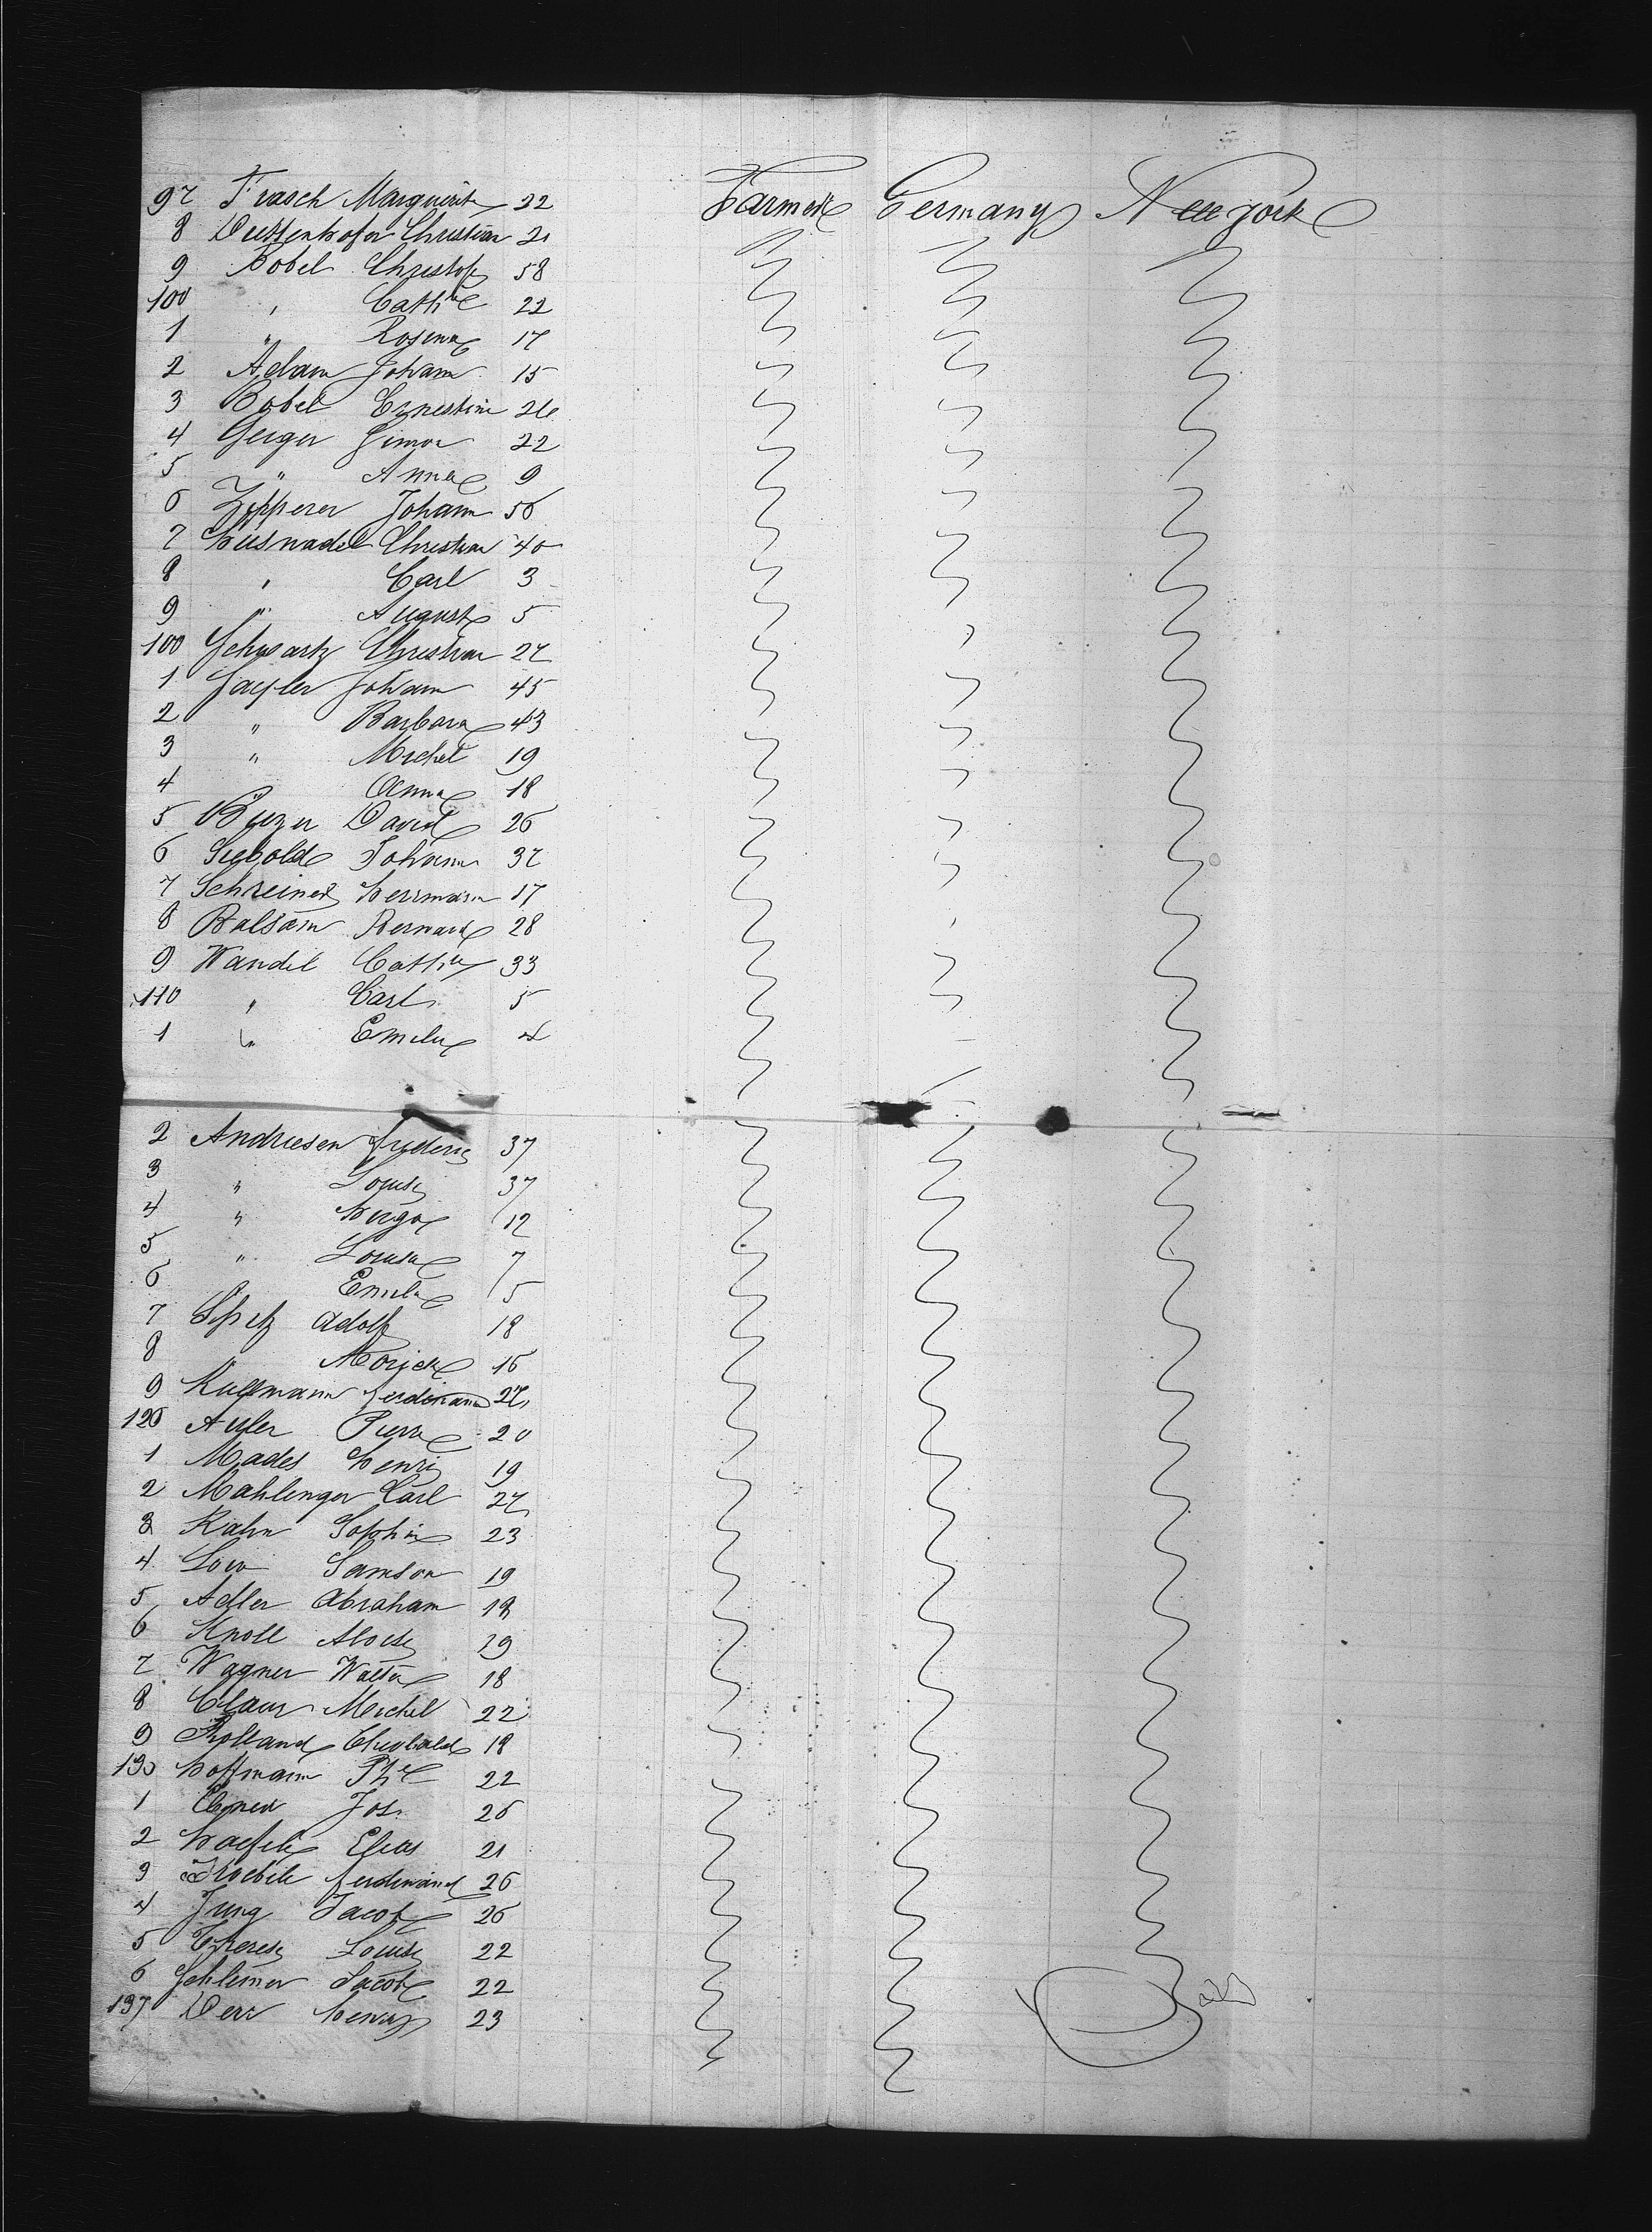 97 Frasch Marguerite 22 Farmer Germany New York
8 Duttenhofer Christian 21
9 Bobel Christof 58
100 " Cathne 22
1 " Rosena 17
2 Adam Johann 15
3 Bobel Ernestine 26
4 Geiger Simon 22
5 " Anna 9
6 Zipperer Johann 56
7 Husnadel Christian 40
8 " Carl 3
9 " August 5
100 Schwartz Christian 27
1 Johann 45
2 " Barbara 43
3 " Michel 19
4 Anna 18
5 David 26
6 Siebold Johann 37
7 Schreiner Herrmann 17
8 Balsam Bernard 28
9 Wandel Cathe 33
110 " Carl 5
1 " Emilie 4
2 Andriesen Frederic 37
3 " Louise 37
4 " Hugo 12
5 " Louisa 7
6 Emilie 5
7 Spitz Adolf 18
8 " 16
9 Kullmann Ferdinand 27
120 Auler Pierre 20
1 Mades Henri 19
2 Mahlenger Carl 27
3 Kahn Sophie 23
4 Low Samson 19
5 Adler Abraham 18
6 Knoll Aloise 29
7 Wagner Walter 18
8 Claus Michel 22
9 Rolland Theobald 18
130 Hoffmann Phe 22
1 Ebner Jos. 26
2 Haefele Elias 21
3 Ferdinand 26
4 Jung Jacob 26
5 Therese Louise 22
6 Schlemer Jacob 22
137 Derr Henry 23